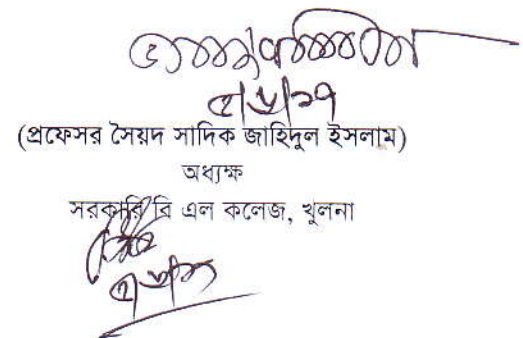 ৫/৬/১৭
(প্রফেসর সৈয়দ সাদিক জাহিদুল ইসলাম)
অধ্যক্ষ
সরকারি বি এল কলেজ, খুলনা